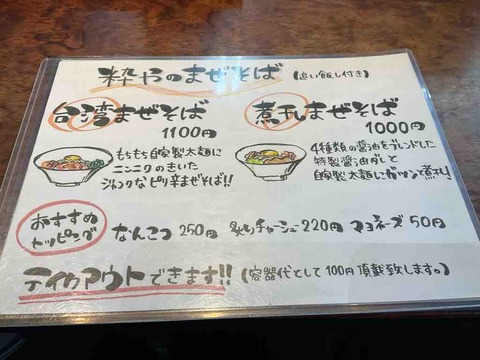 粋やのまぜそば (追い飯し付き)
台湾まぜそば
1100円
もちもち自家製太麺に
ニンニクのきいた
ジャンクなピリ辛まぜそば!!
煮干しまぜそば
1000円
4種類の醤油をブレンドした
特製醤油ダレと
自家製太麺にガツンと煮干!
おすすめ
トッピング
なんこつ 250円 炙りチャーシュー 220円 マヨネーズ 50円
テイクアウトできます!! (容器代として100円頂戴致します。)